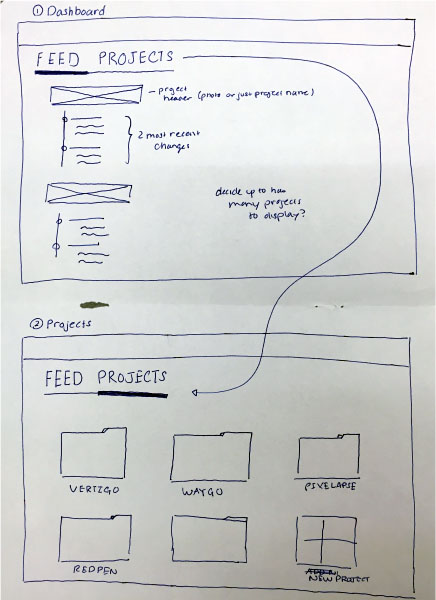 ① Dashboard
FEED PROJECTS
project
header (photo or just project name)
2 most recent
changes
decide up to how
many projects
to display?
② Projects
FEED PROJECTS
VERTIGO
WAYGO
PIXELAPSE
REDPEN
NEW PROJECT